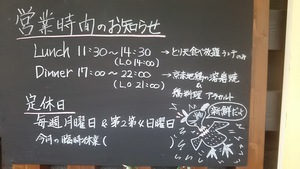 営業時間のお知らせ
Lunch 11:30〜14:30 →とり天食べ放題ランチのみ
(L.O 14:00)
Dinner 17:00〜22:00 →京赤地鶏の溶岩焼
(L.O 21:00) &
鶏料理 アラカルト
定休日
毎週月曜日 & 第2第4日曜日
今月の臨時休業(
新鮮だよ